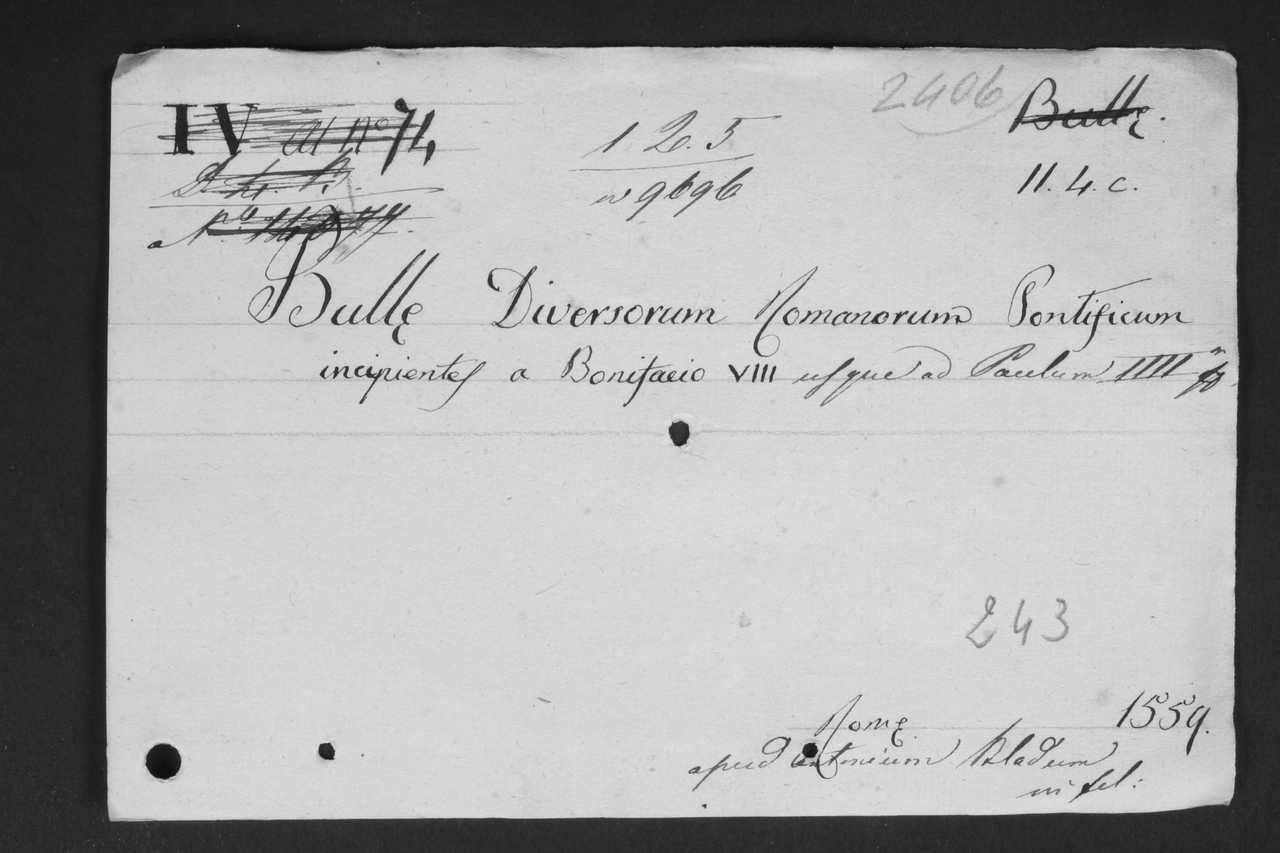 2406
Bullę.
IV at nº 71,
1 2. 5
11. 4. c.
9696
Bullę Diversorum Romanorum Pontificum
incipientes a Bonifacio VIII usque ad Paulum IIII
243
Romę. 1559.
apud Antonium Bladum
in fol: